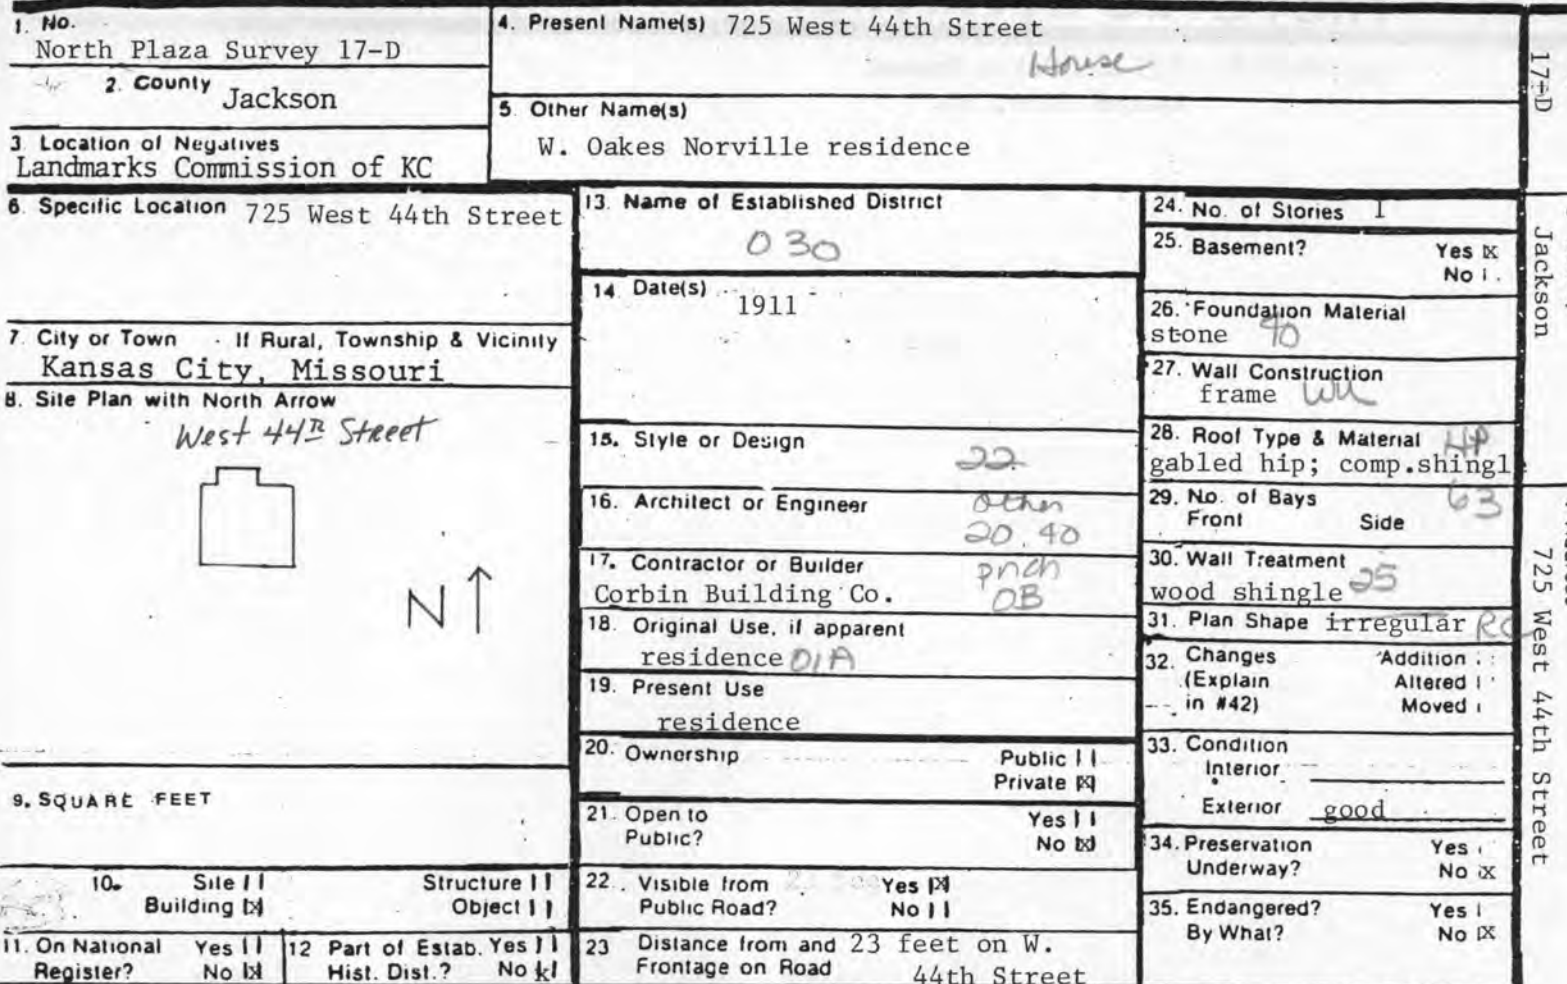 1. No.
North Plaza Survey 17-D
2. County
Jackson
3. Location of Negatives
Landmarks Commission of KC
4. Present Name(s) 725 West 44th Street
House
5. Other Name(s)
W. Oakes Norville residence
6. Specific Location 725 West 44th Street
7. City or Town If Rural, Township & Vicinity
Kansas City, Missouri
8. Site Plan with North Arrow
West 44th Street
N
9. SQUARE FEET
10. Site Structure
Building X Object
11. On National Yes
Register? No X
12 Part of Estab. Yes
Hist. Dist.? No X
13. Name of Established District
030
14. Date(s)
1911
15. Style or Design
22
16. Architect or Engineer
other
20.40
17. Contractor or Builder
prch
Corbin Building Co.
OB
18. Original Use, if apparent
residence 01A
19. Present Use
residence
20. Ownership Public
Private X
21. Open to Yes
Public? No X
22. Visible from Yes X
Public Road? No
23 Distance from and 23 feet on W.
Frontage on Road 44th Street
24. No. of Stories 1
25. Basement? Yes X
No
26. Foundation Material
stone 40
27. Wall Construction
frame WU
28. Roof Type & Material HP
gabled hip; comp.shingle
63
29. No. of Bays
Front Side
30. Wall Treatment
wood shingle 25
31. Plan Shape irregular RC
32. Changes Addition
(Explain Altered
in #42) Moved
33. Condition
Interior
Exterior good
34. Preservation Yes
Underway? No X
35. Endangered? Yes
By What? No X
17-D
Jackson
725 West 44th Street